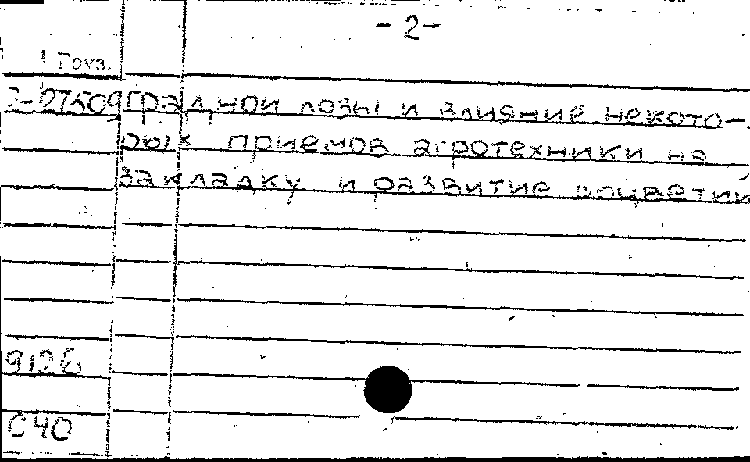 -2-
Груз.
2-27509 градной лозы и влияние некото-
рых приемов агротехники на
закладку и развитие соцветий
9126
С40